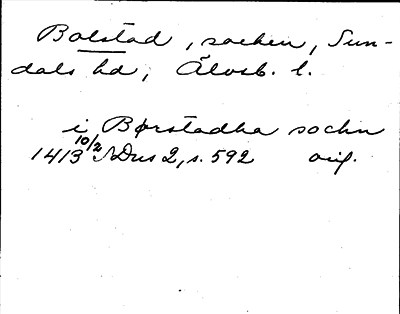 Bolstad, socken, Sun-
dals hd, Älvsb. l.
i Børstadha sochn
1413 10/2 SDns 2, s. 592 orig.